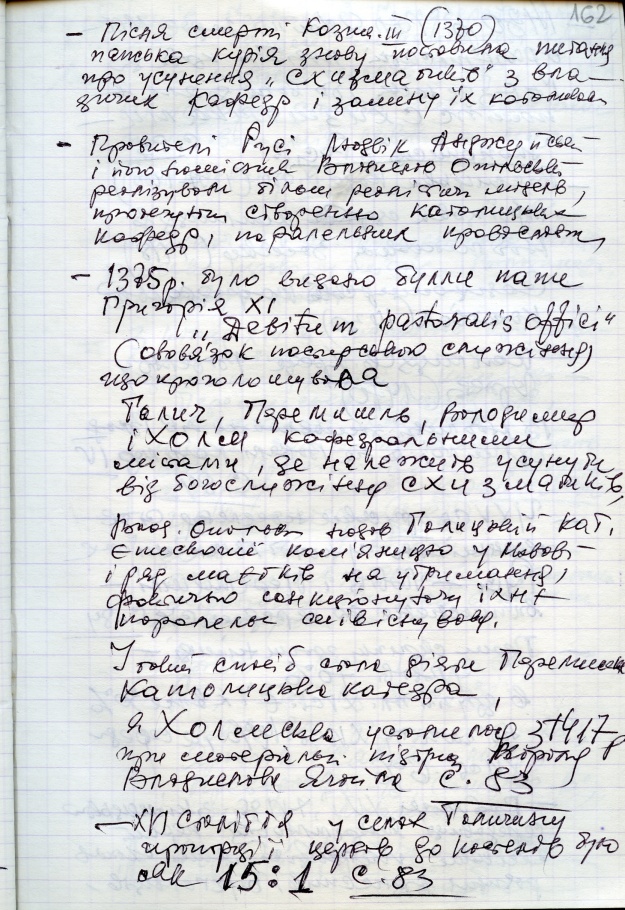 162
– Після смерті Казим. III (1370)
папська курія знову поставила питання
про усунення „схизматиків" з вла-
дичих кафедр і заміну їх католиками
– Правителі Русі Людвік Анджуйський
і його намісник Владислав Опольський
реалізували більш реалістич.
створенню католицьких
кафедр, паралельних православн.
– 1375р. було видано булли папи
Григорія XI
„Debitum pastoralis offici"
(обов'язок пастирського служіння)
що проголошувала
Галич, Перемишль, Володимир
і Холм кафедральними
містами, де належить усунути
від богослужіння схизматиків,
Галицькій кат.
єпископії кам'яницю у Львові
і ряд маєтків на утримання,
фактично санкціонуючи їхнє
паралельн. співіснував.
У такий спосіб стала діяти Перемиська
католицька катедра,
а Холмська з 1417 р
при матеріальн. підтримці Короля
Владислава Ягайла с. 83
– XVI століття у селах Галичини
пропорції церков до костелів було
як 15:1 с. 83